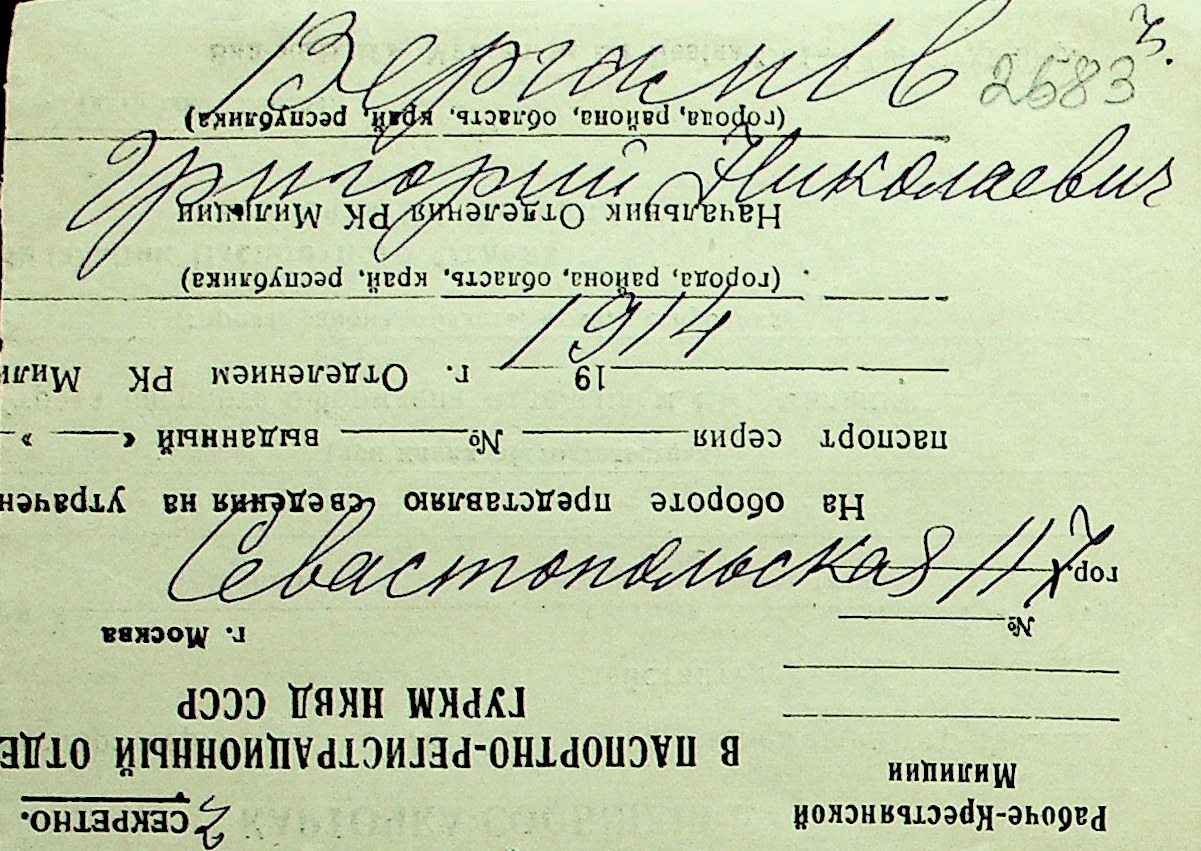 2683
Григорий Николаевич
1914
Севастопольская 11
Рабоче-Крестьянской
Милиции
№
гор.
СЕКРЕТНО.
В ПАСПОРТНО-РЕГИСТРАЦИОННЫЙ ОТДЕ
ГУРКМ НКВД СССР
г. Москва
На обороте представляю сведения на утрачен
паспорт серия № выданный « »
19 г. Отделением РК Мили
(города, района, область, край, республика)
Начальник Отделения РК Милиции
(города, района, область, край, республика)